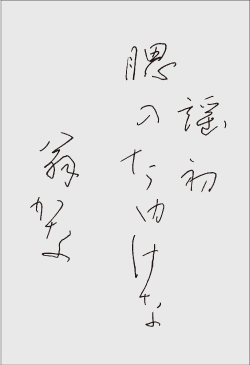 謡初
腮のたゆけな
翁かな